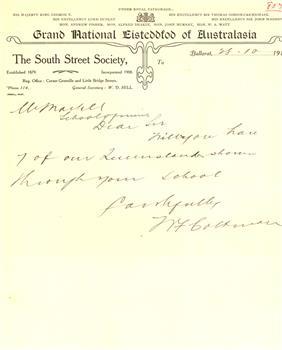 UNDER ROYAL PATRONAGE.
HIS MAJESTY KING GEORGE V.
HIS EXCELLENCY LORD DUDLEY
HIS EXCELLENCY SIR THOMAS GIBSON-CARMICHAEL
HON. ANDREW FISHER, HON. ALFRED DEAKIN, HON. JOHN MURRAY, HON. W. A. WATT
Grand National Eisteddfod of Australasia
The South Street Society,
Established 1879. Incorporated 1908.
Reg. Office: Corner Grenville and Little Bridge Streets.
'Phone 174. General Secretary: W. D. HILL.
To
Ballarat, 10
Mr
School of Mines
Dear Sir
Will you have
7 of our Queenslanders shown
through your school
Faithfully